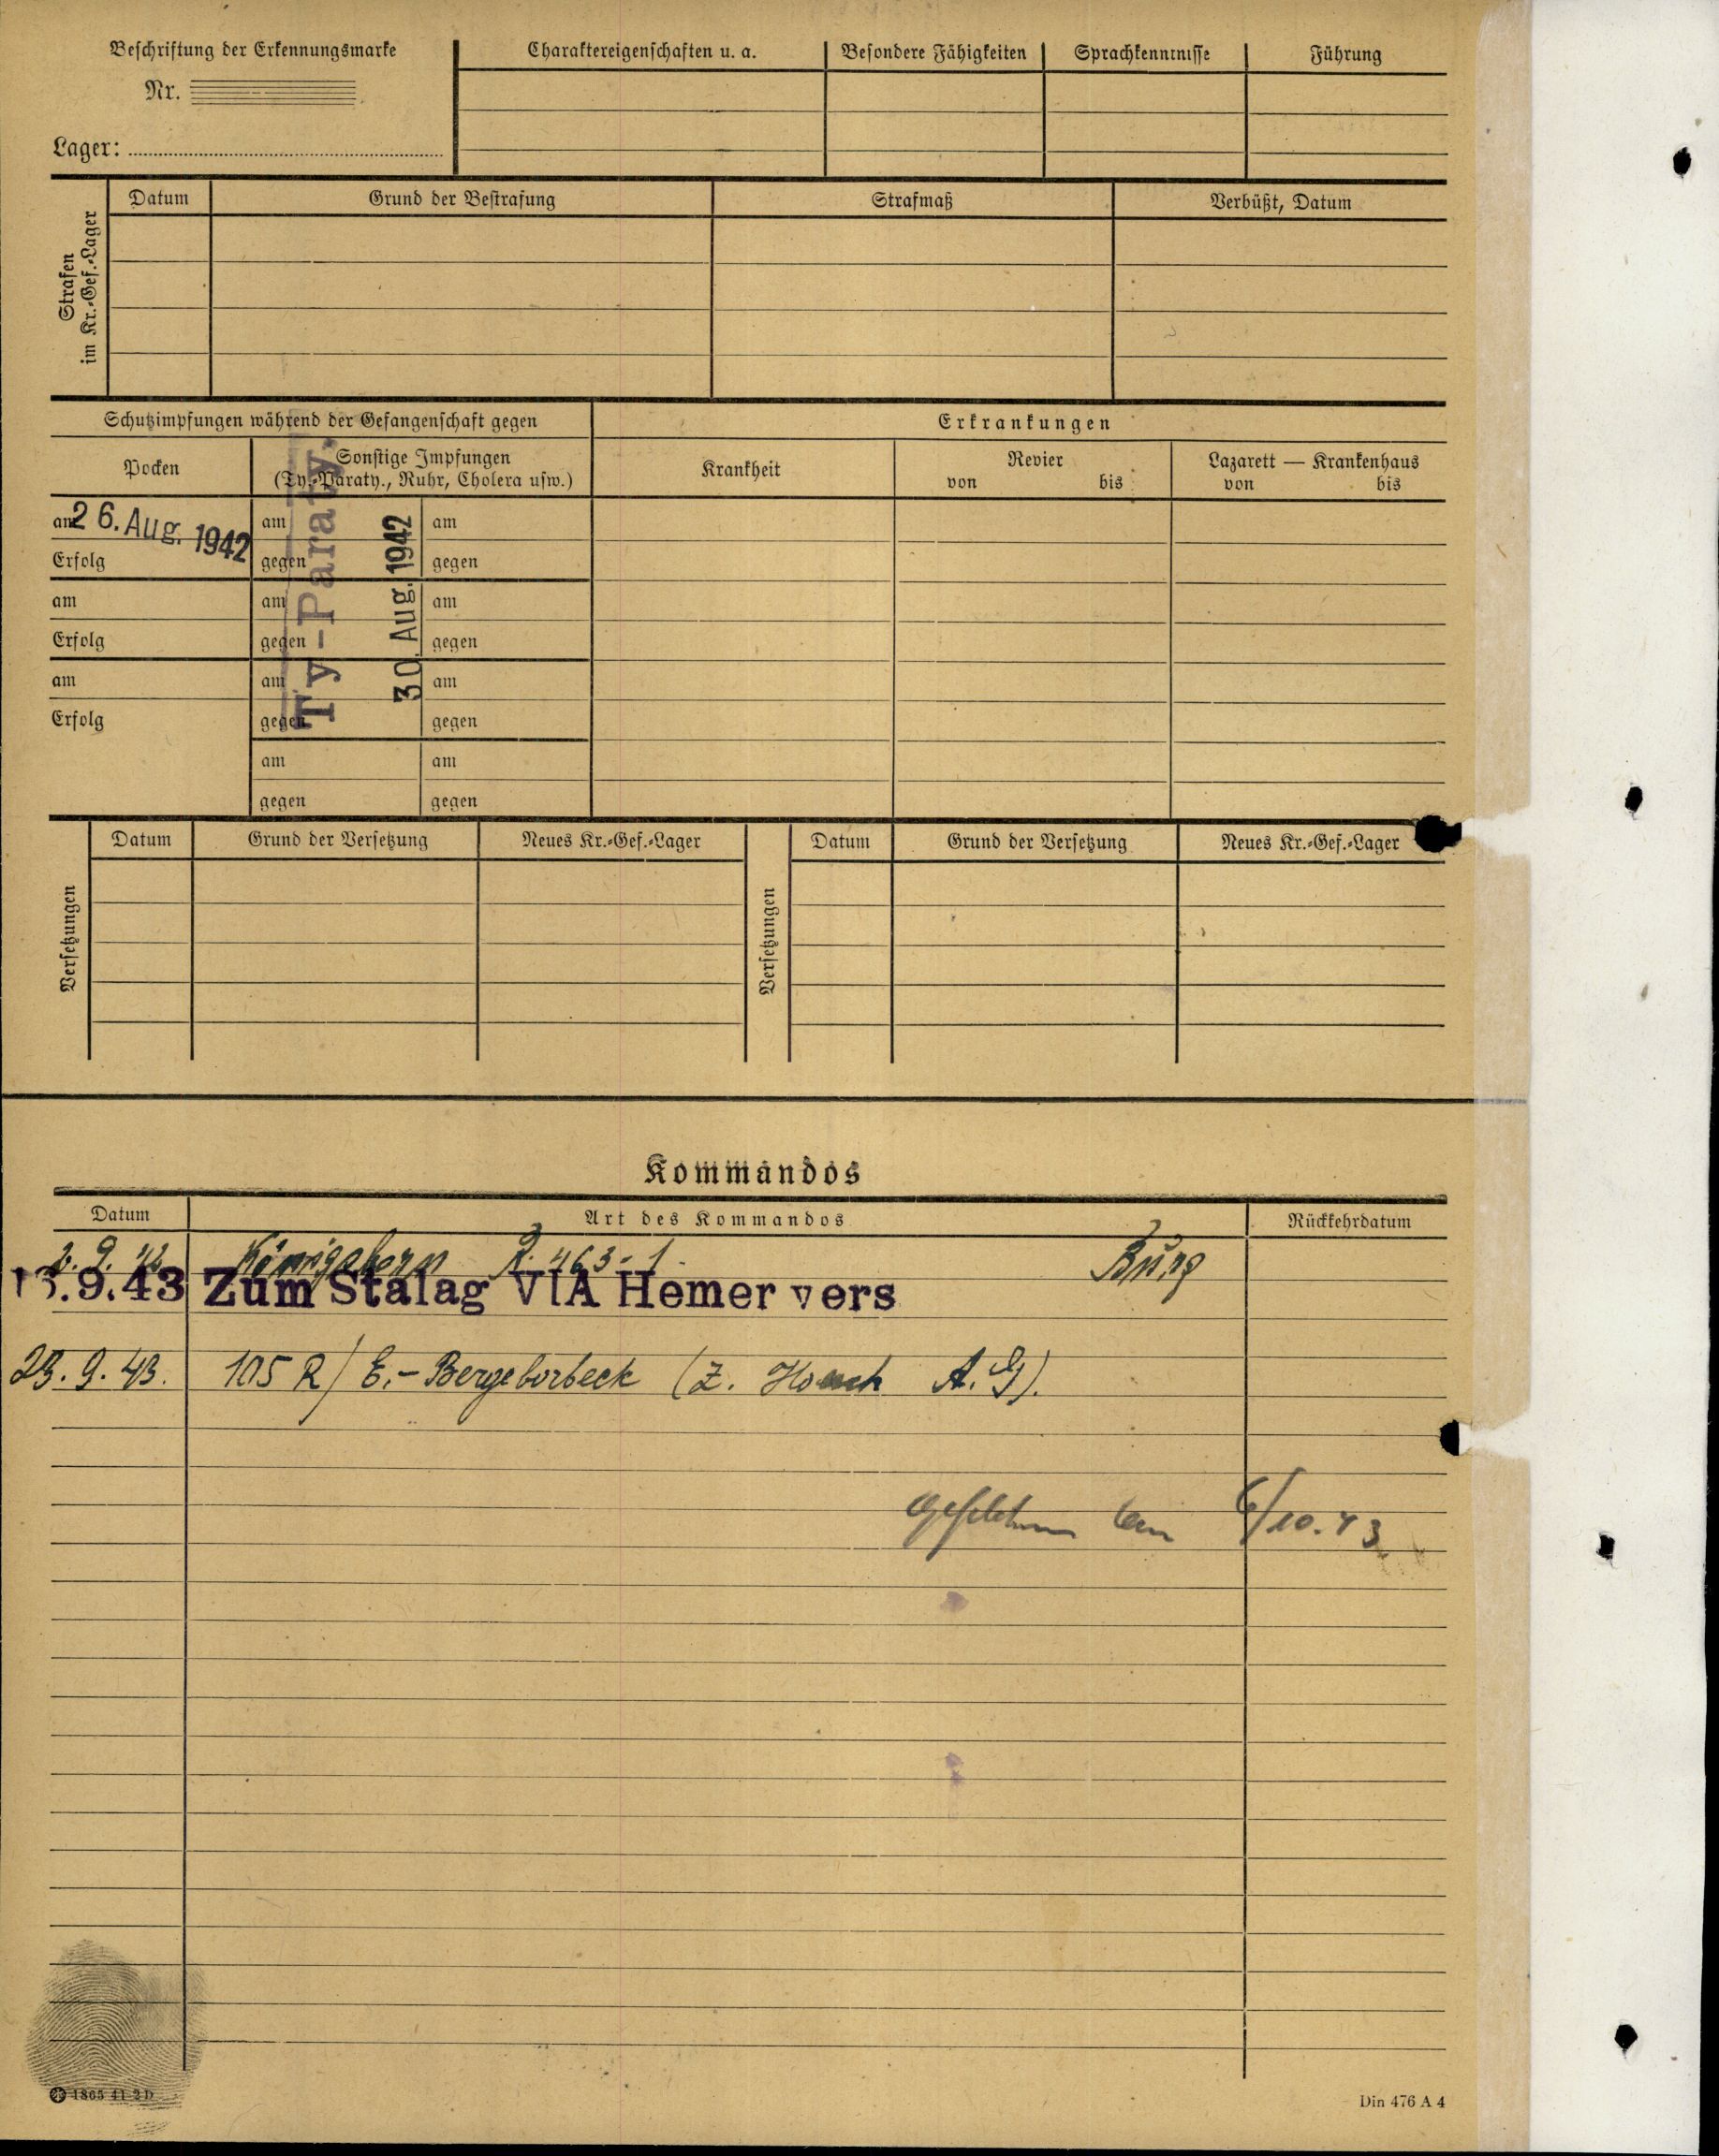 Beschriftung der Erkennungsmarke
Nr.
Lager:
Charaktereigenschaften u. a.
Besondere Fähigkeiten
Sprachkenntnisse
Führung
Strafen
im Kr.-Gef.-Lager
Datum
Grund der Bestrafung
Strafmaß
Verbüßt, Datum
Schutzimpfungen während der Gefangenschaft gegen
Erkrankungen
Pocken
Sonstige Impfungen
(Ty.-Paraty., Ruhr, Cholera usw.)
Krankheit
Revier
von bis
Lazarett — Krankenhaus
von bis
am 26. Aug. 1942
Erfolg
am
Erfolg
am
Erfolg
am am
gegen gegen
am am
gegen gegen
am am
gegen gegen
am am
gegen gegen
Ty-Paraty.
30. Aug. 1942
Versetzungen
Datum
Grund der Versetzung
Neues Kr.-Gef.-Lager
Versetzungen
Datum
Grund der Versetzung
Neues Kr.-Gef.-Lager
Kommandos
Datum
Art des Kommandos
Rückkehrdatum
2. 9. 42 Königsborn R. 463-1 Burg
.9.43 Zum Stalag VIA Hemer vers
23. 9. 43. 105 R/ E.-Bergeborbeck (Z. A.G).
6/10.43
1865 41 2D
Din 476 A 4